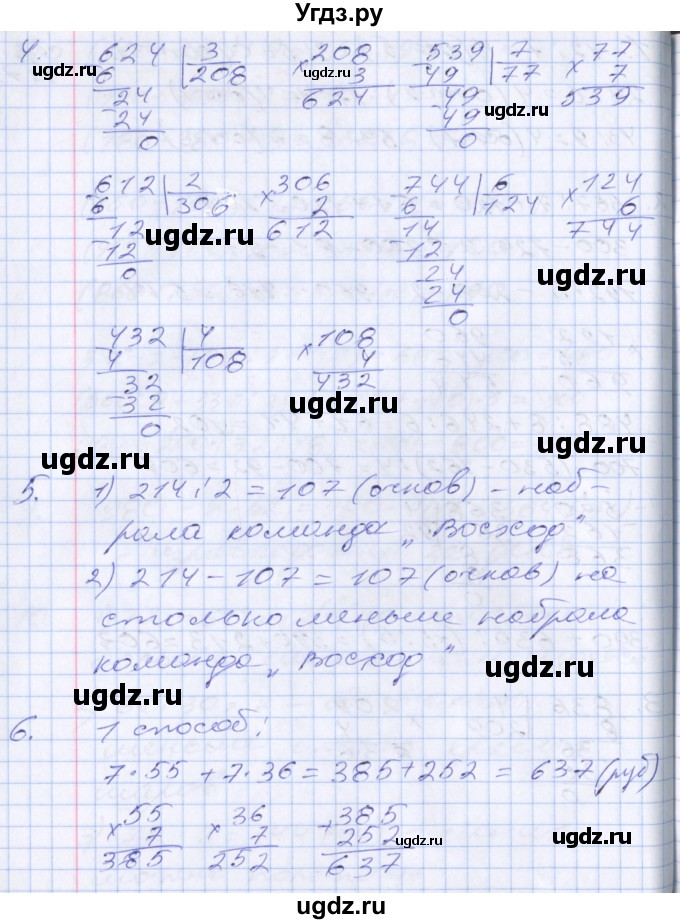 Угдз.ру
4. 624 | 3 × 208 539 | 7 × 77
6 208 3 49 77 7
24 624 49 539
24 49
0 0
ugdz.ru ugdz.ru ugdz.ru
612 | 2 × 306 744 | 6 × 124
6 306 2 6 124 6
12 612 14 744
12 12
0 24
24
0
ugdz.ru ugdz.ru
432 | 4 × 108
4 108 4
32 432
32
0
ugdz.ru ugdz.ru
5. 1) 214 : 2 = 107 (очков) – наб-
рала команда „Восход"
2) 214 – 107 = 107 (очков) на
столько меньше набрала
команда „Восход"
ugdz.ru ugdz.ru
6. 1 способ:
7·55 + 7·36 = 385 + 252 = 637 (руб)
× 55 × 36 + 385
7 7 252
385 252 637
ugdz.ru ugdz.ru ugdz.ru ugdz.ru